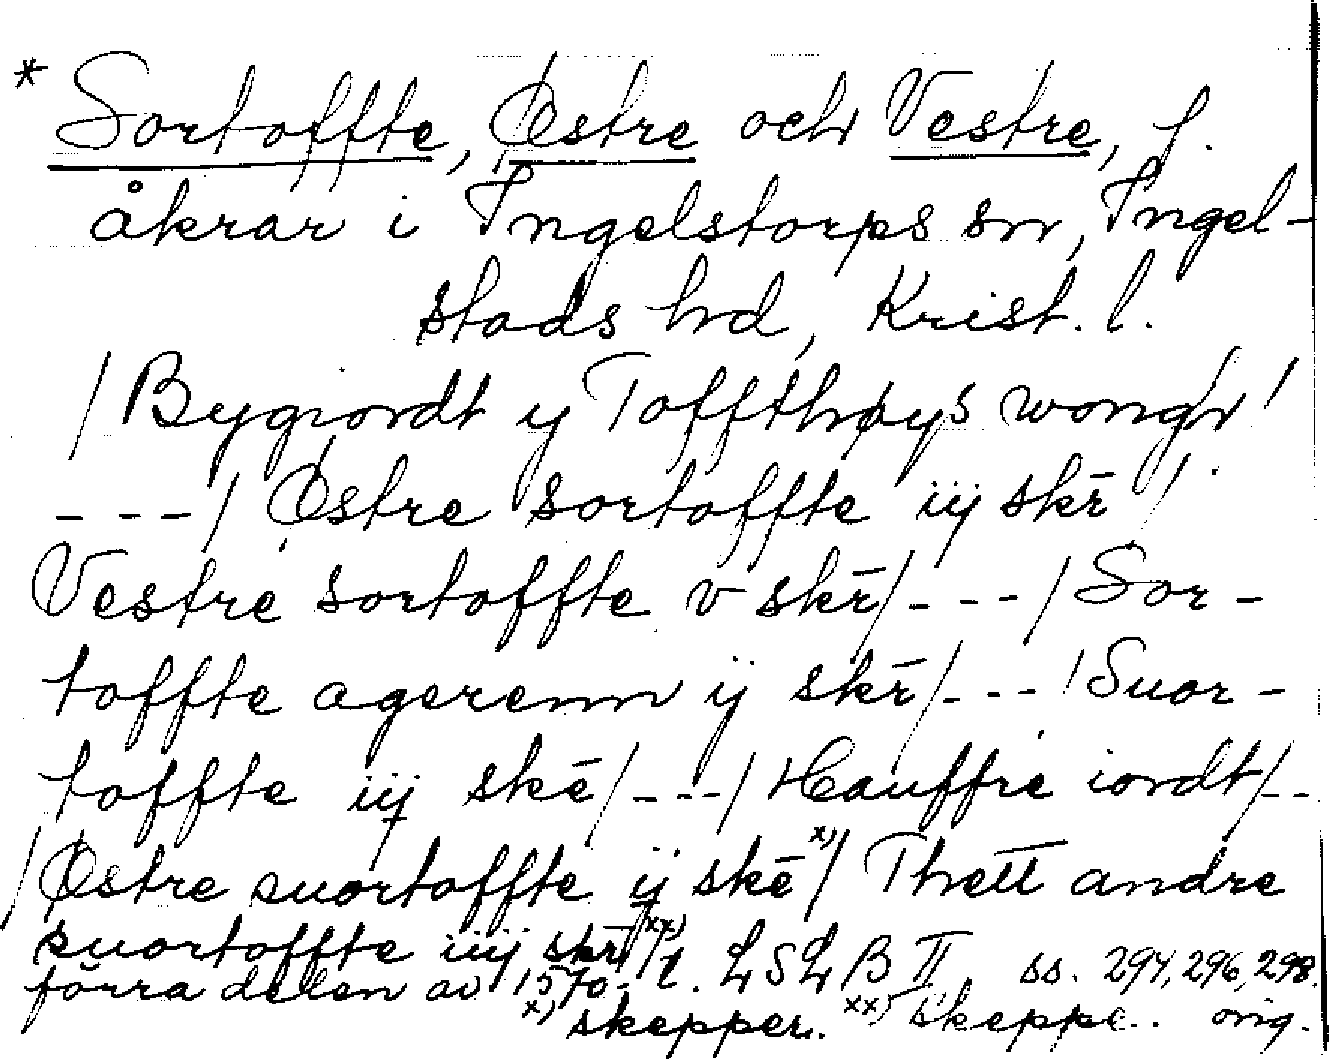 * Sortoffte, Østre och Vestre, f.
åkrar i Ingelstorps sn, Ingel-
stads hd, Krist. l.
/ Bygiordt y Toffthøys wongh /
---/ Østre sortoffte iij skr̄ /
Vestre sortoffte v skr̄/---/ Sor-
toffte agerenn ij skr̄/---/ Suor-
toffte iij skē/---/ Hauffre iordt/--
/ Østre suortoffte ij skē x)/ Thett andre
suortoffte iiij skr̄/ xx) t. LSLB II ss. 294, 296, 298.
förra delen av 1570-
x) skepper. xx) skeppe.. orig.